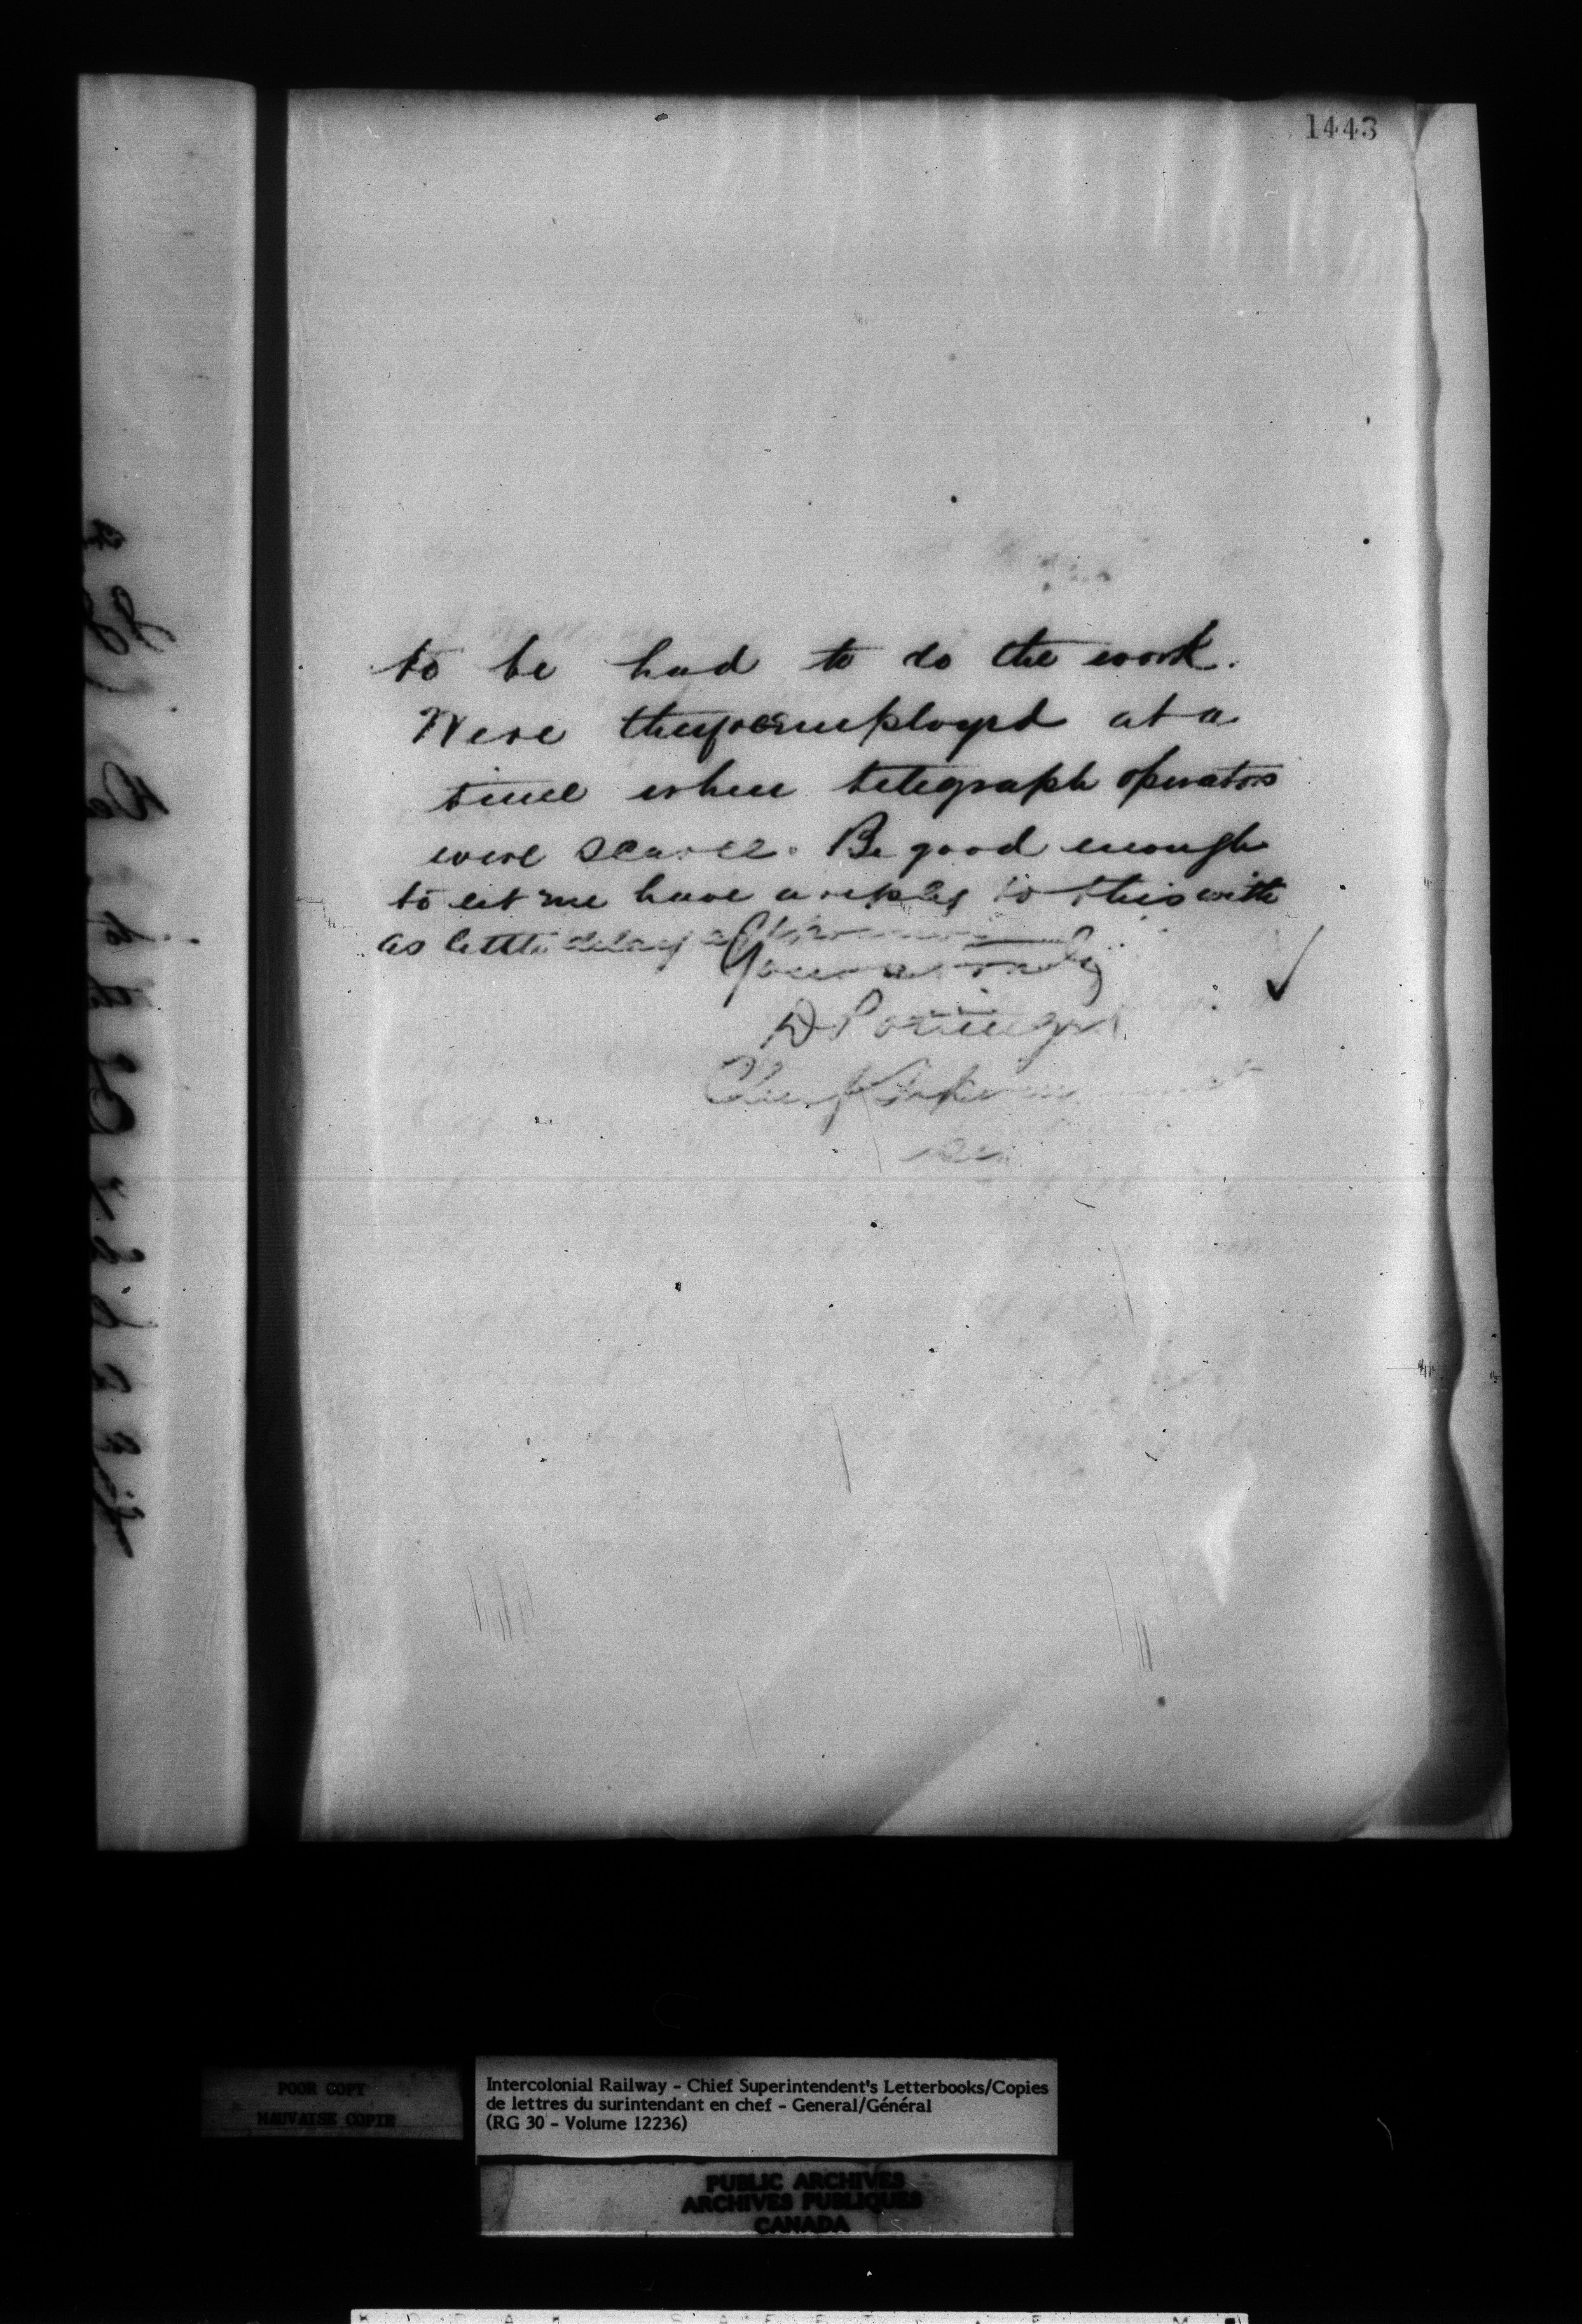 1443
to be had to do the work.
Were they employed at a
time when telegraph operators
were scarce. Be good enough
to let me have a reply to this with
as little delay as
Yours Truly
D Pottinger
Chief Superintendent
POOR COPY
MAUVAISE COPIE
Intercolonial Railway - Chief Superintendent's Letterbooks/Copies
de lettres du surintendant en chef - General/Général
(RG 30 - Volume 12236)
PUBLIC ARCHIVES
ARCHIVES PUBLIQUES
CANADA